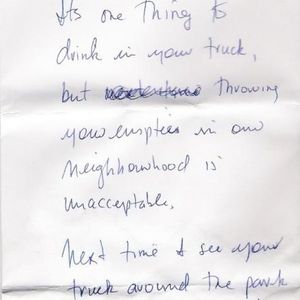 Its one thing to
drink in your truck,
but throwing
your empties in our
neighbourhood is
unacceptable.
Next time I see your
truck around the park